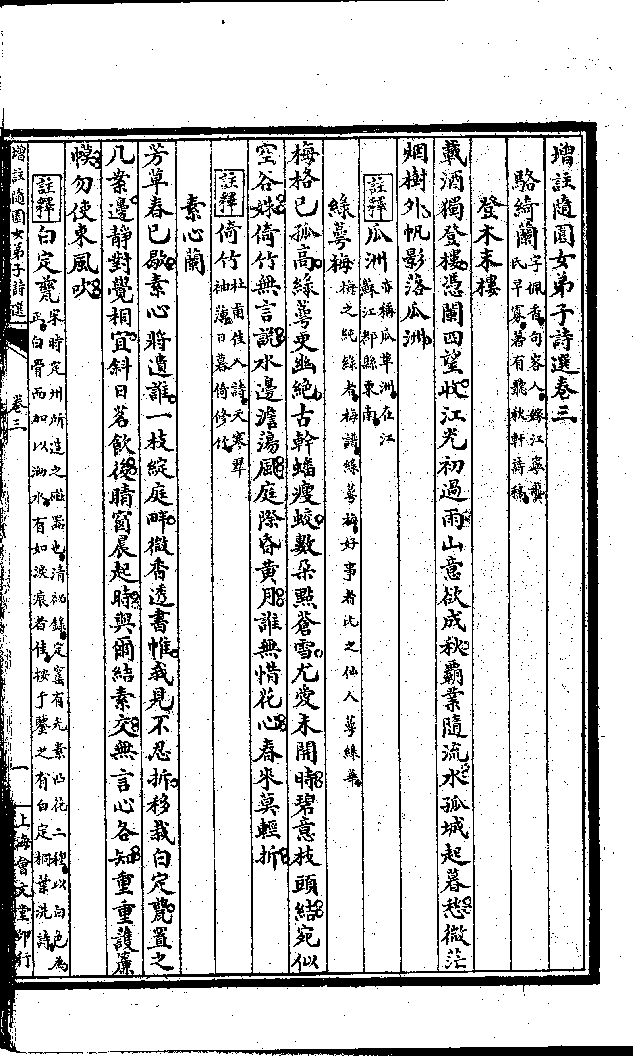 增註隨園女弟子詩選卷三
駱綺蘭 字佩香句容人嫁江寧龔
氏早寡著有聽秋軒詩稿
登木末樓
載酒獨登樓憑闌四望收江光初過雨山意欲成秋霸業隨流水孤城起暮愁微茫
烟樹外帆影落瓜洲
註釋 瓜洲 亦稱瓜埠洲在江
蘇江都縣東南
綠萼梅 梅之純綠者梅譜綠萼梅好事者比之仙人萼綠華
梅格已孤高綠萼更幽絕古幹蟠瘦蛟數朵點蒼雪尤愛未開時碧意枝頭結宛似
空谷姝倚竹無言說水邊澹蕩風庭際昏黃月誰無惜花心春來莫輕折
註釋 倚竹 杜甫佳人詩天寒翠
袖薄日暮倚修竹
素心蘭
芳草春已歇素心將遺誰一枝綻庭畔微香透書帷我見不忍折移栽白定甆置之
几案邊靜對覺相宜斜日茗飲後晴窗晨起時與爾結素交無言心各知重重護簾
幙勿使東風吹
註釋 白定甆 宋時定州所造之磁器也清祕錄定窰有光素凸花二種以白色為
正白骨而加以泑水有如淚痕者佳按于鑒之有白定桐葉洗詩
增註隨園女弟子詩選 卷三 一 上海會文堂印行